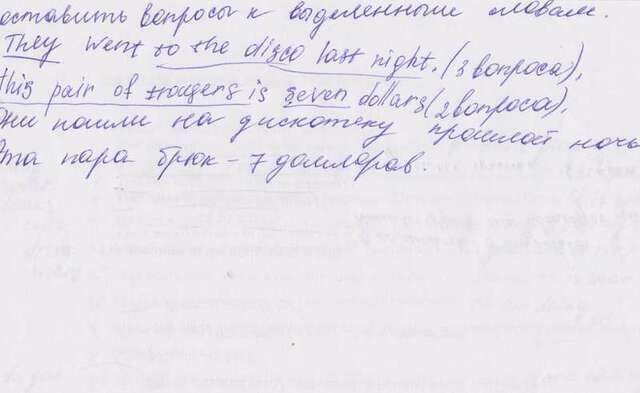 оставить вопросы к выделенным словам.
They went to the disco last night. (3 вопроса),
this pair of trougers is seven dollars (2 вопроса).
Они пошли на дискотеку прошлой ночь
Эта пара брюк - 7 долларов.